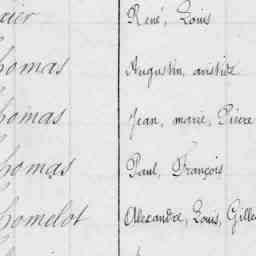 René, Louis
homas Augustin, aristide
homas Jean, marie, Pierre
homas Paul, François
homelot Alexandre, Louis, Gille